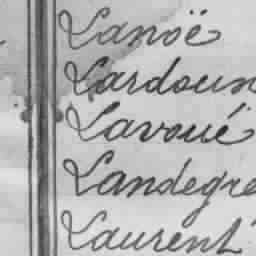 Lanoë
Lardoun
Lavoué
Landegre
Laurent